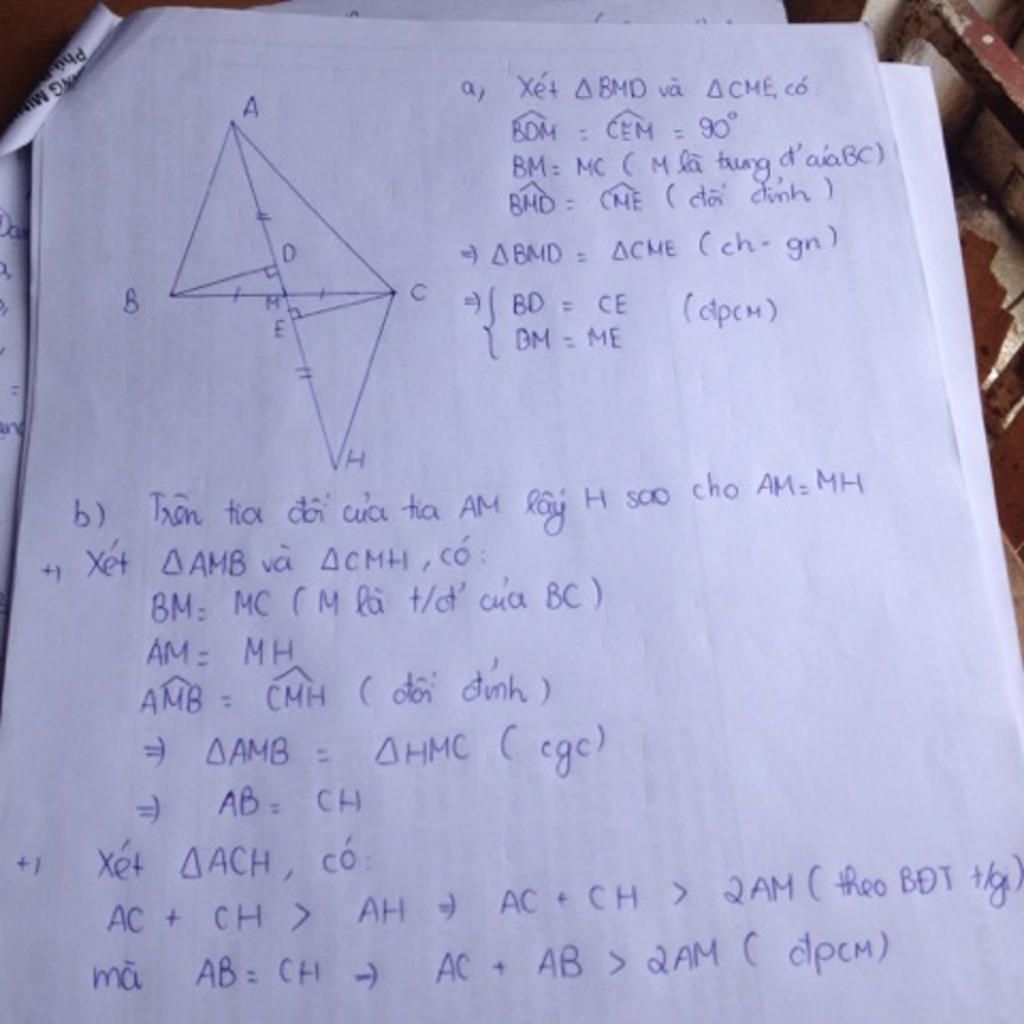 a, Xét ΔBMD và ΔCME, có
BDM = CEM = 90°
BM = MC ( M là trung đ' của BC)
BMD = CME ( đối đỉnh )
=> ΔBMD = ΔCME ( ch - gn )
=> { BD = CE (đpcm)
DM = ME
A
D
B
M
C
E
H
b) Trên tia đối của tia AM lấy H sao cho AM = MH
+, Xét ΔAMB và ΔCMH, có:
BM = MC ( M là t/đ' của BC )
AM = MH
AMB = CMH ( đối đỉnh )
=> ΔAMB = ΔHMC ( cgc )
=> AB = CH
+, Xét ΔACH, có:
AC + CH > AH => AC + CH > 2AM ( theo BĐT t/gi)
mà AB = CH => AC + AB > 2AM ( đpcm )